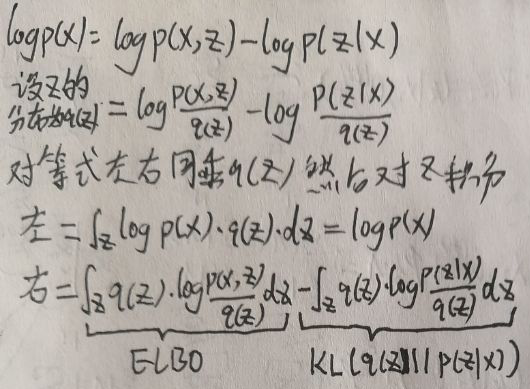 logp(x)=logp(x,z)-logp(z|x)
设z的
分布为q(z) =log p(x,z)/q(z) -log p(z|x)/q(z)
对等式左右同乘q(z) 然后对z积分
左=∫z log p(x)·q(z)·dz=logp(x)
右=∫z q(z)·log p(x,z)/q(z) dz -∫z q(z)·log p(z|x)/q(z) dz
ELBO KL(q(z)||p(z|x))